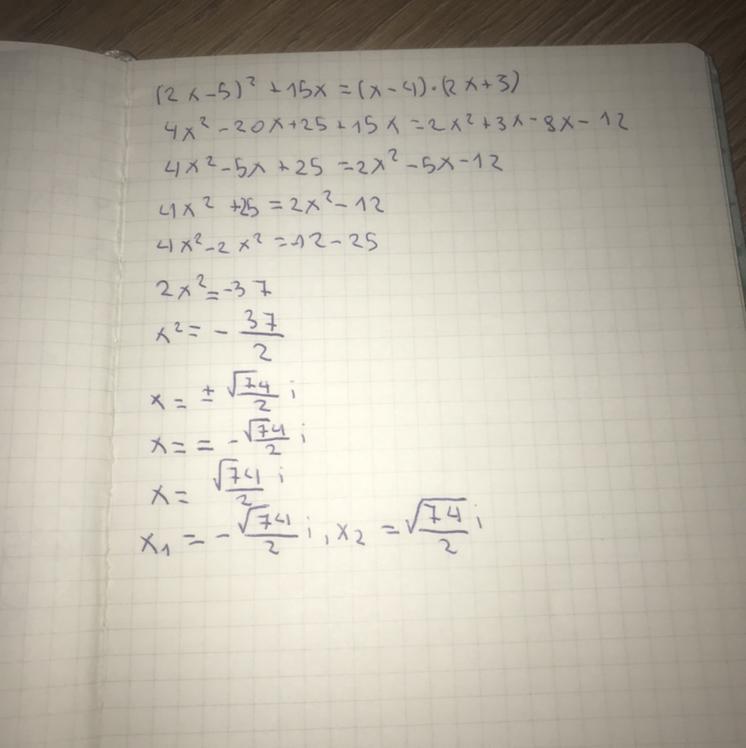 (2x-5)² + 15x = (x-4)·(2x+3)
4x² - 20x + 25 + 15x = 2x² + 3x - 8x - 12
4x² - 5x + 25 = 2x² - 5x - 12
4x² + 25 = 2x² - 12
4x² - 2x² = -12 - 25
2x² = -37
x² = - 37/2
x = ± √74/2 i
x = = - √74/2 i
x = √74/2 i
x₁ = - √74/2 i, x₂ = √74/2 i